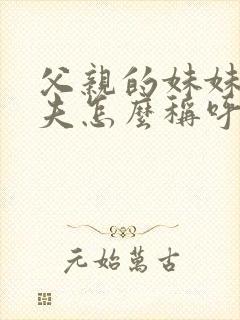 父親的妹妹
夫怎麼稱呼
元始萬古